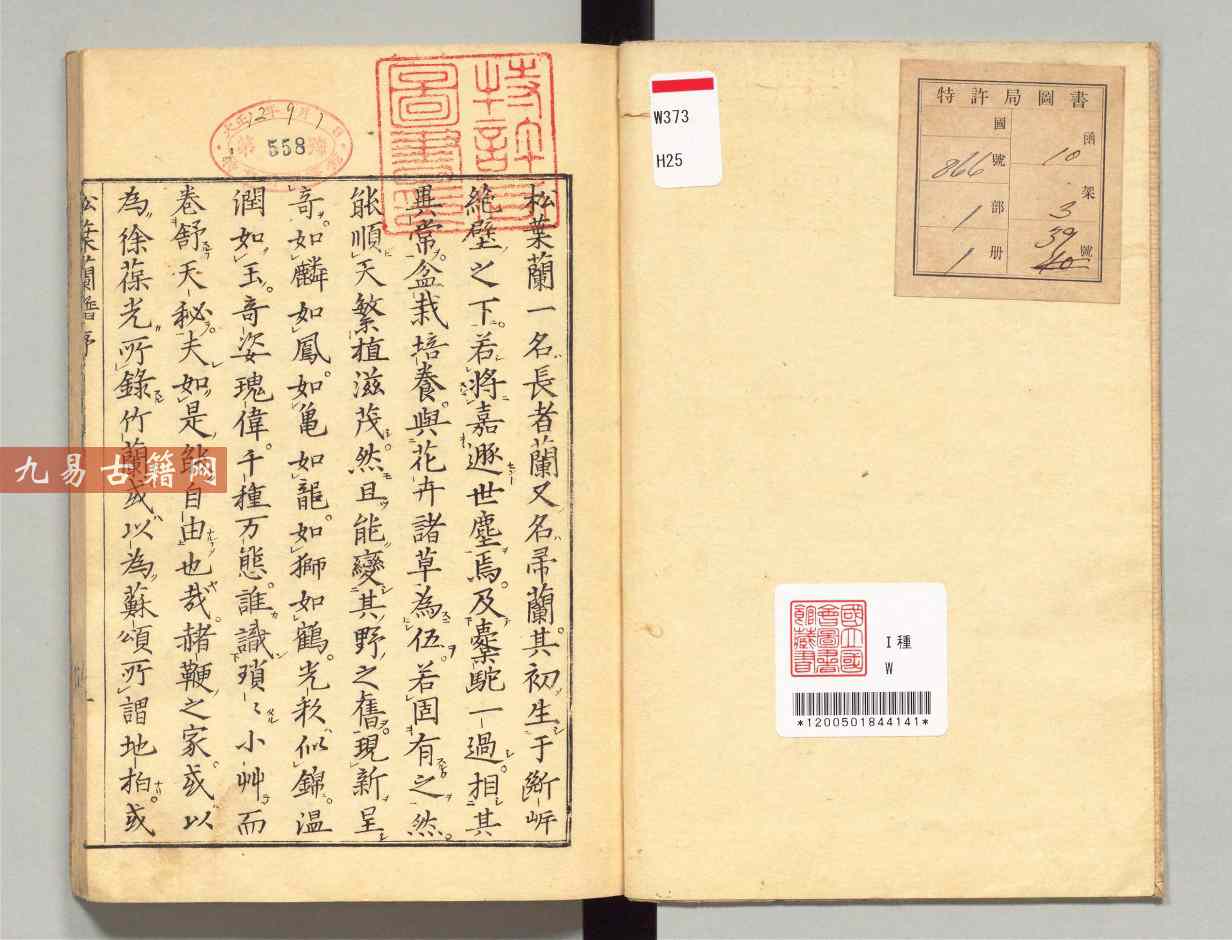 特許局圖書
函 10
架 3
號 39 40
國
號 866
部 1
册 1
W373
H25
國立國會圖書館藏書
I種
W
*1200501844141*
大正12年9月1日
558
松葉蘭一名長者蘭又名帚蘭其初生于斷岸
絶壁之下若將嘉遯世塵焉及橐駝一過相其
異常盆栽培養與花卉諸草為伍若固有之然
能順天繁植滋茂然且能變其野之舊現新呈
竒如麟如鳳如亀如龍如獅如鶴光秋似錦温
潤如玉竒姿瑰偉千種万態誰識瑣〻小艸而
卷舒天秘夫如是能自由也哉赭鞭之家或以
為徐葆光所錄竹蘭或以為蘇頌所謂地柏或
松葉蘭譜序
九易古籍网